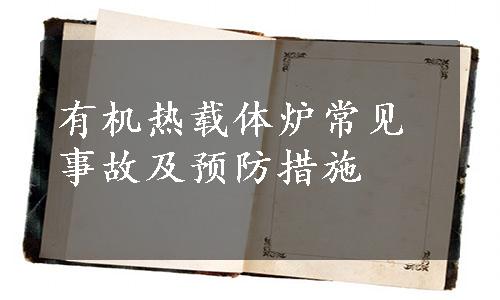 有机热载体炉常见
事故及预防措施